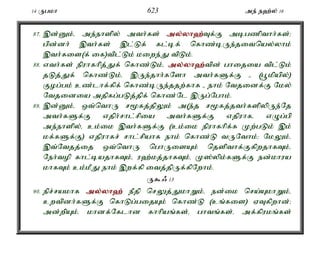 14 ருபமா 623 அந் நஹ்ல் 16
87. இன்னும், அந்நாளில் அவர்கள் அல்லாஹ்வுக்கு அடிபணிவார்கள்;
பின்னர் இவர்கள் இட்டுக் கட்டிக் கொண்டிருந்தவையெல்லாம்
இவர்களை(க் கை)விட்டும் மறைந்து விடும்.
88. எவர்கள் நிராகரித்துக் கொண்டும், அல்லாஹ்வின் பாதையை விட்டும்
தடுத்துக் கொண்டும், இருந்தார்களோ அவர்களுக்கு - (பூமியில்)
குழப்பம் உண்டாக்கிக் கொண்டிருந்ததற்காக - நாம் வேதனைக்கு மேல்
வேதனையை அதிகப்படுத்திக் கொண்டே இருப்போம்.
89. இன்னும், ஒவ்வொரு சமூகத்திலும் அ(ந்த சமூகத்த)வர்களிலிருந்தே
அவர்களுக்கு எதிர்சாட்சியை அவர்களுக்கு எதிராக எழுப்பி
அந்நாளில், உம்மை இவர்களுக்கு (உம்மை நிராகரிக்க முற்படும் இம்
மக்களுக்கு) எதிராகச் சாட்சியாக நாம் கொண்டு வருவோம்; மேலும்,
இவ்வேதத்தை ஒவ்வொரு பொருளையும் தெளிவாக்குகிறதாகவும்,
நேர்வழி காட்டியதாகவும், ரஹ்மத்தாகவும், முஸ்லிம்களுக்கு நன்மாராய
மாகவும் உம்மீது நாம் இறக்கி வைத்திருக்கிறோம்.
ருகூஃ 13
90. நிச்சயமாக அல்லாஹ் நீதி செலுத்துமாறும், நன்மை செய்யுமாறும்,
உறவினர்களுக்கு கொடுப்பதையும் கொண்டு (உங்களை) ஏவுகிறான்;
அன்றியும், மானக்கேடான காரியங்கள், பாவங்கள், அக்கிரமங்கள்